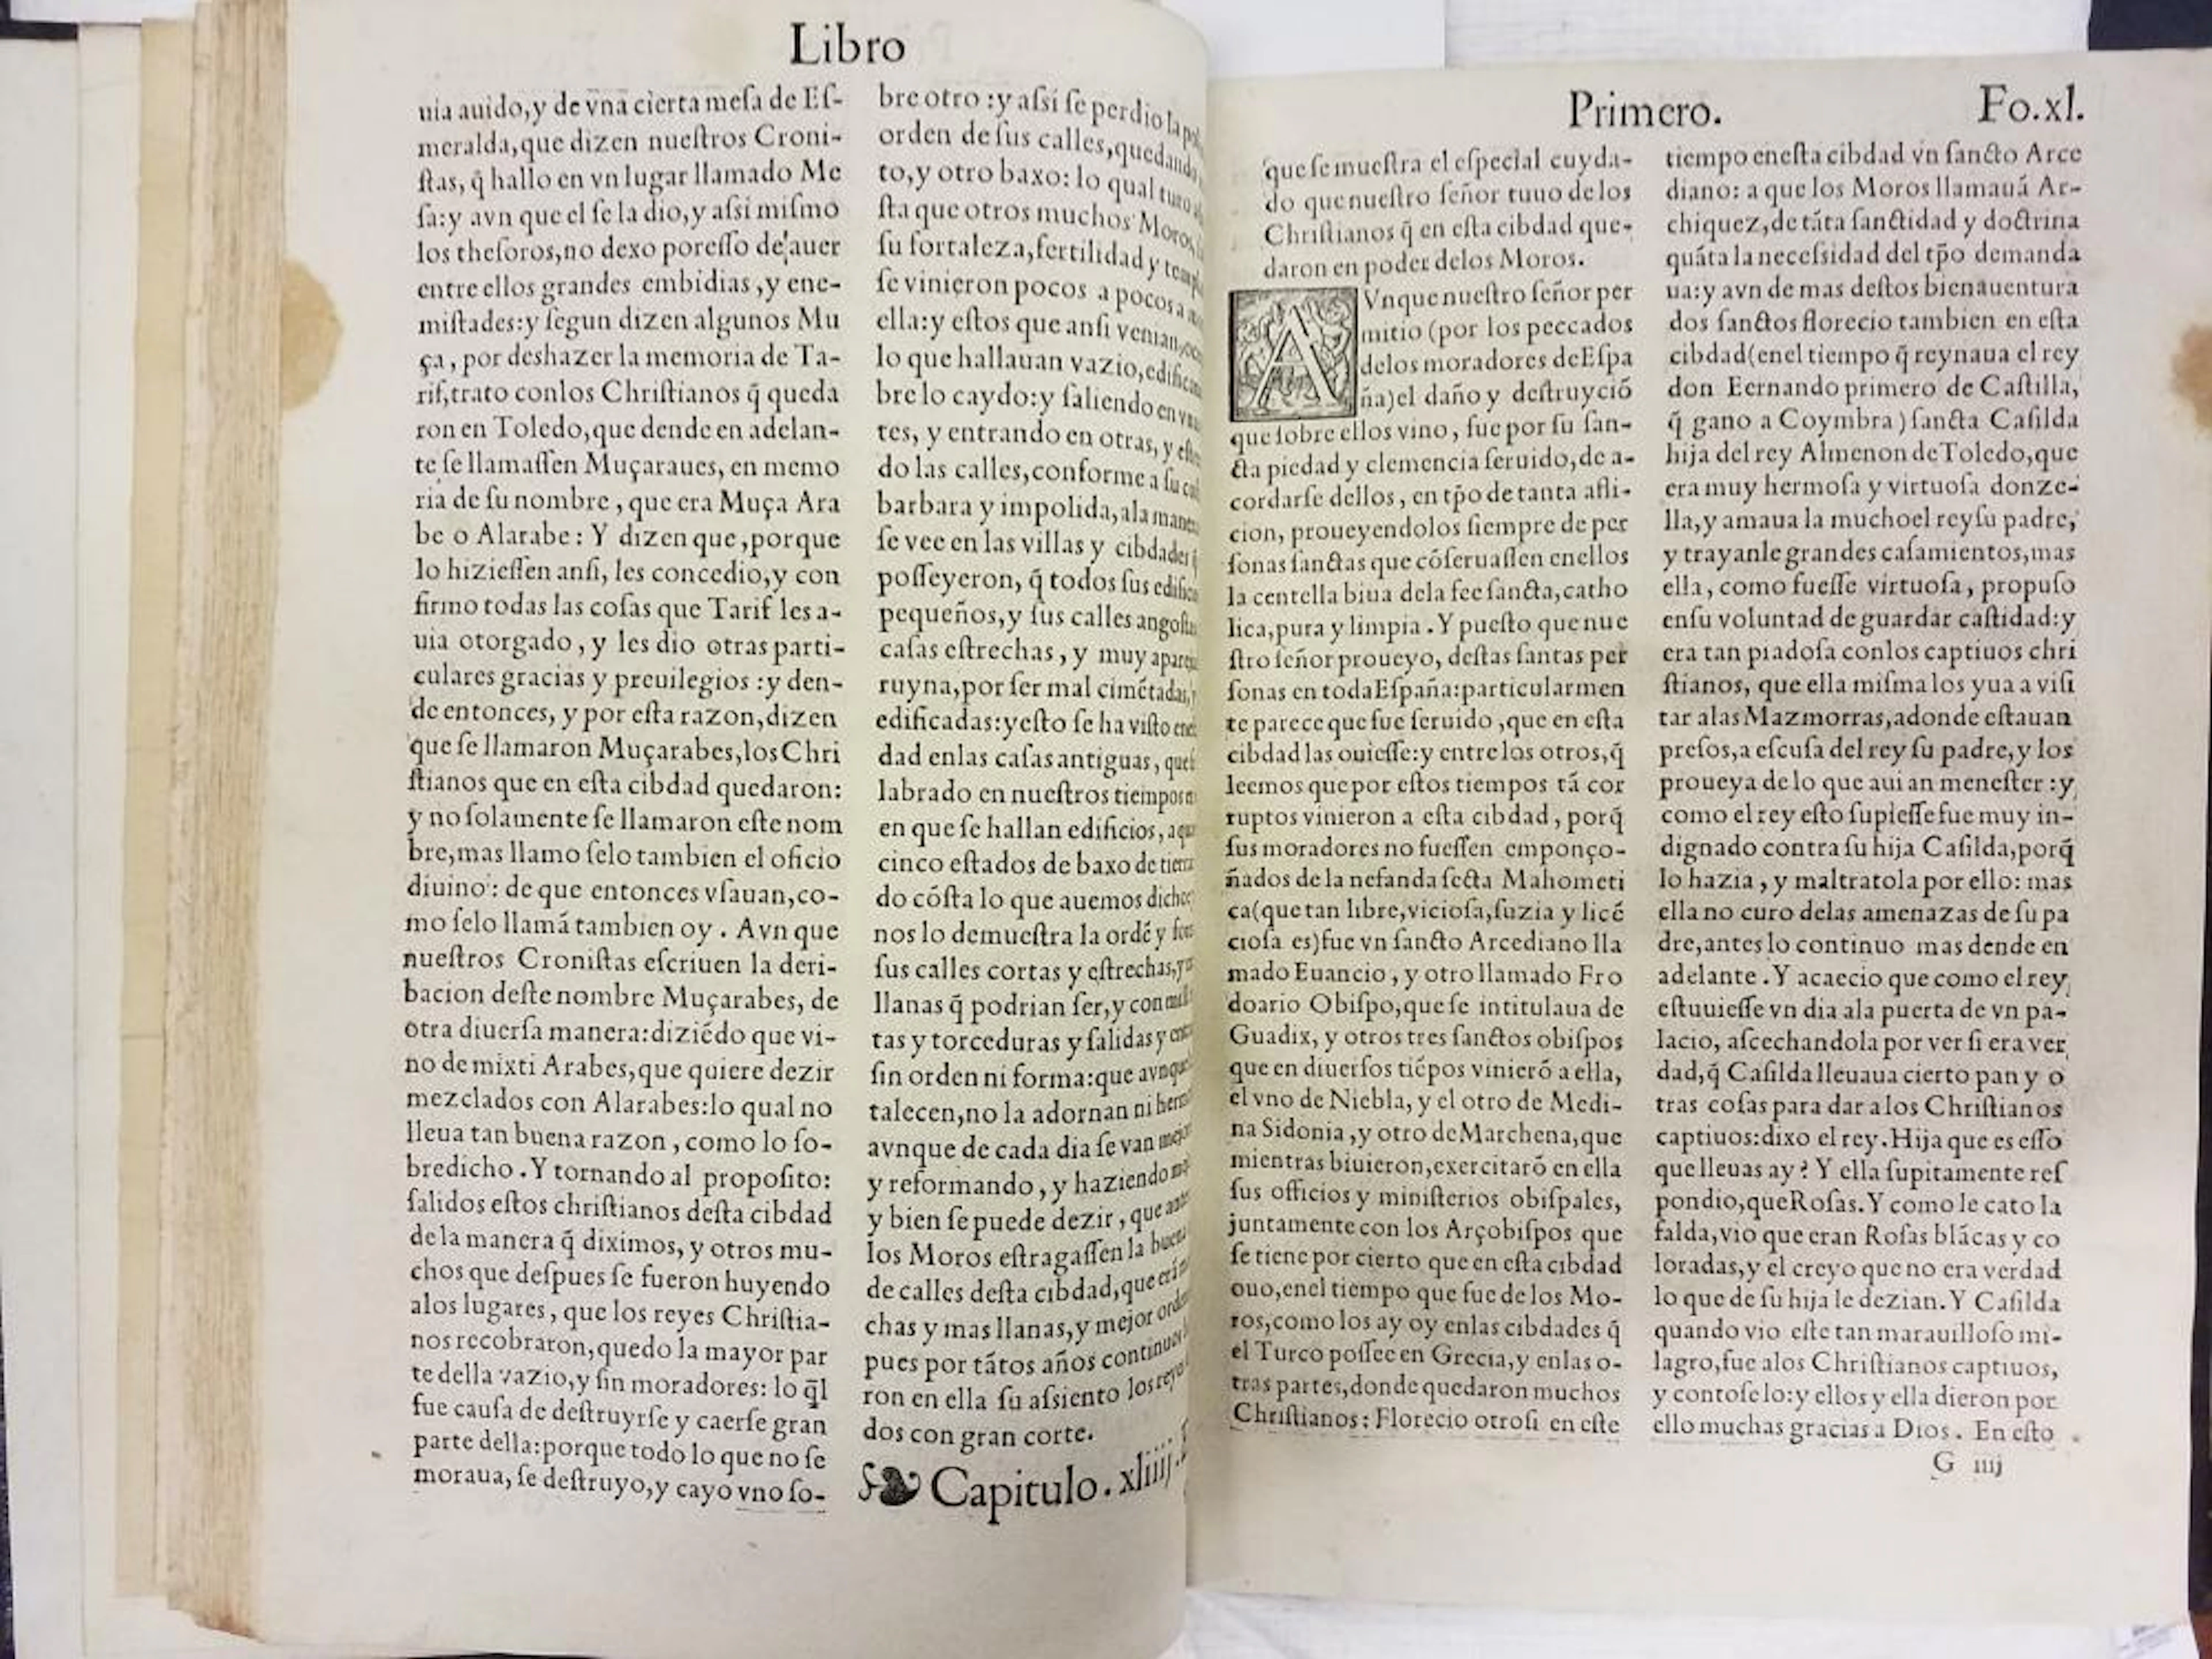 Libro
uia auido,y de vna cierta mesa de Eſ-
meralda,que dizen nueſtros Croni-
ſtas, q̃ hallo en vn lugar llamado Me
ſa:y avn que el ſe la dio,y aſsi miſmo
los theſoros,no dexo poreſſo de auer
entre ellos grandes embidias ,y ene-
miſtades:y ſegun dizen algunos Mu
ça, por deshazer la memoria de Ta-
rif,trato conlos Chriſtianos q̃ queda
ron en Toledo,que dende en adelan-
te ſe llamaſſen Muçaraues, en memo
ria de ſu nombre, que era Muça Ara
be o Alarabe: Y dizen que ,porque
lo hizieſſen anſi, les concedio,y con
firmo todas las coſas que Tarif les a-
uia otorgado , y les dio otras parti-
culares gracias y preuilegios :y den-
de entonces, y por eſta razon,dizen
que ſe llamaron Muçarabes,los Chri
ſtianos que en eſta cibdad quedaron:
y no ſolamente ſe llamaron eſte nom
bre,mas llamo ſelo tambien el oficio
diuino : de que entonces vſauan,co-
mo ſelo llamá tambien oy . Avn que
nueſtros Croniſtas eſcriuen la deri-
bacion deſte nombre Muçarabes, de
otra diuerſa manera:diziédo que vi-
no de mixti Arabes,que quiere dezir
mezclados con Alarabes:lo qual no
lleua tan buena razon , como lo ſo-
bredicho . Y tornando al propoſito:
ſalidos eſtos chriſtianos deſta cibdad
de la manera q̃ diximos, y otros mu-
chos que deſpues ſe fueron huyendo
alos lugares , que los reyes Chriſtia-
nos recobraron,quedo la mayor par
te della vazio,y ſin moradores: lo q̃l
fue cauſa de deſtruyrſe y caerſe gran
parte della:porque todo lo que no ſe
moraua, ſe deſtruyo,y cayo vno ſo-
bre otro :y aſsi ſe perdio la
orden de ſus calles,quedando
to,y otro baxo: lo qual
ſta que otros muchos Moros,
ſu fortaleza,fertilidad y
ſe vinieron pocos a pocos a
ella:y eſtos que anſi venian,
lo que hallauan vazio,
bre lo caydo:y ſaliendo en
tes, y entrando en otras, y
do las calles,conforme a ſu
barbara y impolida,ala
ſe vee en las villas y cibdades q̃
poſſeyeron, q̃ todos ſus
pequeños,y ſus calles
caſas eſtrechas , y muy
ruyna,por ſer mal cimétadas,
edificadas:yeſto ſe ha viſto
dad enlas caſas antiguas,
labrado en nueſtros tiempos
en que ſe hallan edificios,
cinco eſtados de baxo de tierra
do cóſta lo que auemos dicho
nos lo demueſtra la ordé y
ſus calles cortas y eſtrechas,
llanas q̃ podrian ſer,y con
tas y torceduras y ſalidas y
ſin orden ni forma:que
talecen,no la adornan ni
avnque de cada dia ſe van
y reformando , y haziendo
y bien ſe puede dezir , que
los Moros eſtragaſſen la buena
de calles deſta cibdad,que
chas y mas llanas,y mejor
pues por tátos años
ron en ella ſu aſsiento los
dos con gran corte.
Capitulo. xliiij.
Primero. Fo.xl.
que ſe mueſtra el eſpecial cuyda-
do que nueſtro ſeñor tuuo de los
Chriſtianos q̃ en eſta cibdad que-
daron en poder delos Moros.
AVnque nueſtro ſeñor per
mitio (por los peccados
delos moradores deEſpa
ña)el daño y deſtruyció
que ſobre ellos vino , fue por ſu ſan-
cta piedad y clemencia ſeruido,de a-
cordarſe dellos , en tp̃o de tanta afli-
cion, proueyendolos ſiempre de per
ſonas ſanctas que cóſeruaſſen enellos
la centella biua dela fee ſancta,catho
lica,pura y limpia . Y pueſto que nue
ſtro ſeñor proueyo, deſtas ſantas per
ſonas en todaEſpaña:particularmen
te parece que fue ſeruido ,que en eſta
cibdad las ouieſſe:y entre los otros,q̃
leemos que por eſtos tiempos tá cor
ruptos vinieron a eſta cibdad, porq̃
ſus moradores no fueſſen emponço-
ñados de la nefanda ſecta Mahometi
ca(que tan libre,vicioſa,ſuzia y licé
cioſa es)fue vn ſancto Arcediano lla
mado Euancio , y otro llamado Fro
doario Obiſpo,que ſe intitulaua de
Guadix, y otros tres ſanctos obiſpos
que en diuerſos tiépos vinieró a ella,
el vno de Niebla, y el otro de Medi-
na Sidonia ,y otro deMarchena,que
mientras biuieron,exercitaró en ella
ſus officios y miniſterios obiſpales,
juntamente con los Arçobiſpos que
ſe tiene por cierto que en eſta cibdad
ouo,enel tiempo que fue de los Mo-
ros,como los ay oy enlas cibdades q̃
el Turco poſſee en Grecia,y enlas o-
tras partes,donde quedaron muchos
Chriſtianos: Florecio otroſi en eſte
tiempo eneſta cibdad vn ſancto Arce
diano: a que los Moros llamauá Ar-
chiquez,de táta ſanctidad y doctrina
quáta la neceſsidad del tp̃o demanda
ua:y avn de mas deſtos bienauentura
dos ſanctos florecio tambien en eſta
cibdad(enel tiempo q̃ reynaua el rey
don Eernando primero de Caſtilla,
q̃ gano a Coymbra ) ſancta Caſilda
hija del rey Almenon deToledo,que
era muy hermoſa y virtuoſa donze-
lla,y amaua la muchoel reyſu padre,
y trayanle grandes caſamientos,mas
ella , como fueſſe virtuoſa , propuſo
enſu voluntad de guardar caſtidad:y
era tan piadoſa conlos captiuos chri
ſtianos, que ella miſma los yua a viſi
tar alas Mazmorras,adonde eſtauan
preſos,a eſcuſa del rey ſu padre,y los
proueya de lo que aui an meneſter :y
como el rey eſto ſupieſſe fue muy in-
dignado contra ſu hija Caſilda,porq̃
lo hazia , y maltratola por ello: mas
ella no curo delas amenazas de ſu pa
dre,antes lo continuo mas dende en
adelante . Y acaecio que como el rey
eſtuuieſſe vn dia ala puerta de vn pa-
lacio, aſcechandola por ver ſi era ver
dad,q̃ Caſilda lleuaua cierto pan y o
tras coſas para dar a los Chriſtianos
captiuos:dixo el rey . Hija que es eſſo
que lleuas ay? Y ella ſupitamente reſ
pondio,queRoſas. Y como le cato la
falda,vio que eran Roſas blácas y co
loradas,y el creyo que no era verdad
lo que de ſu hija le dezian. Y Caſilda
quando vio eſte tan marauilloſo mi-
lagro,fue alos Chriſtianos captiuos,
y contoſe lo:y ellos y ella dieron por
ello muchas gracias a Dios . En eſto
G iiij